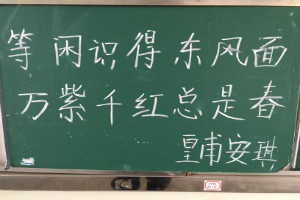 等闲识得东风面
万紫千红总是春
皇甫安琪